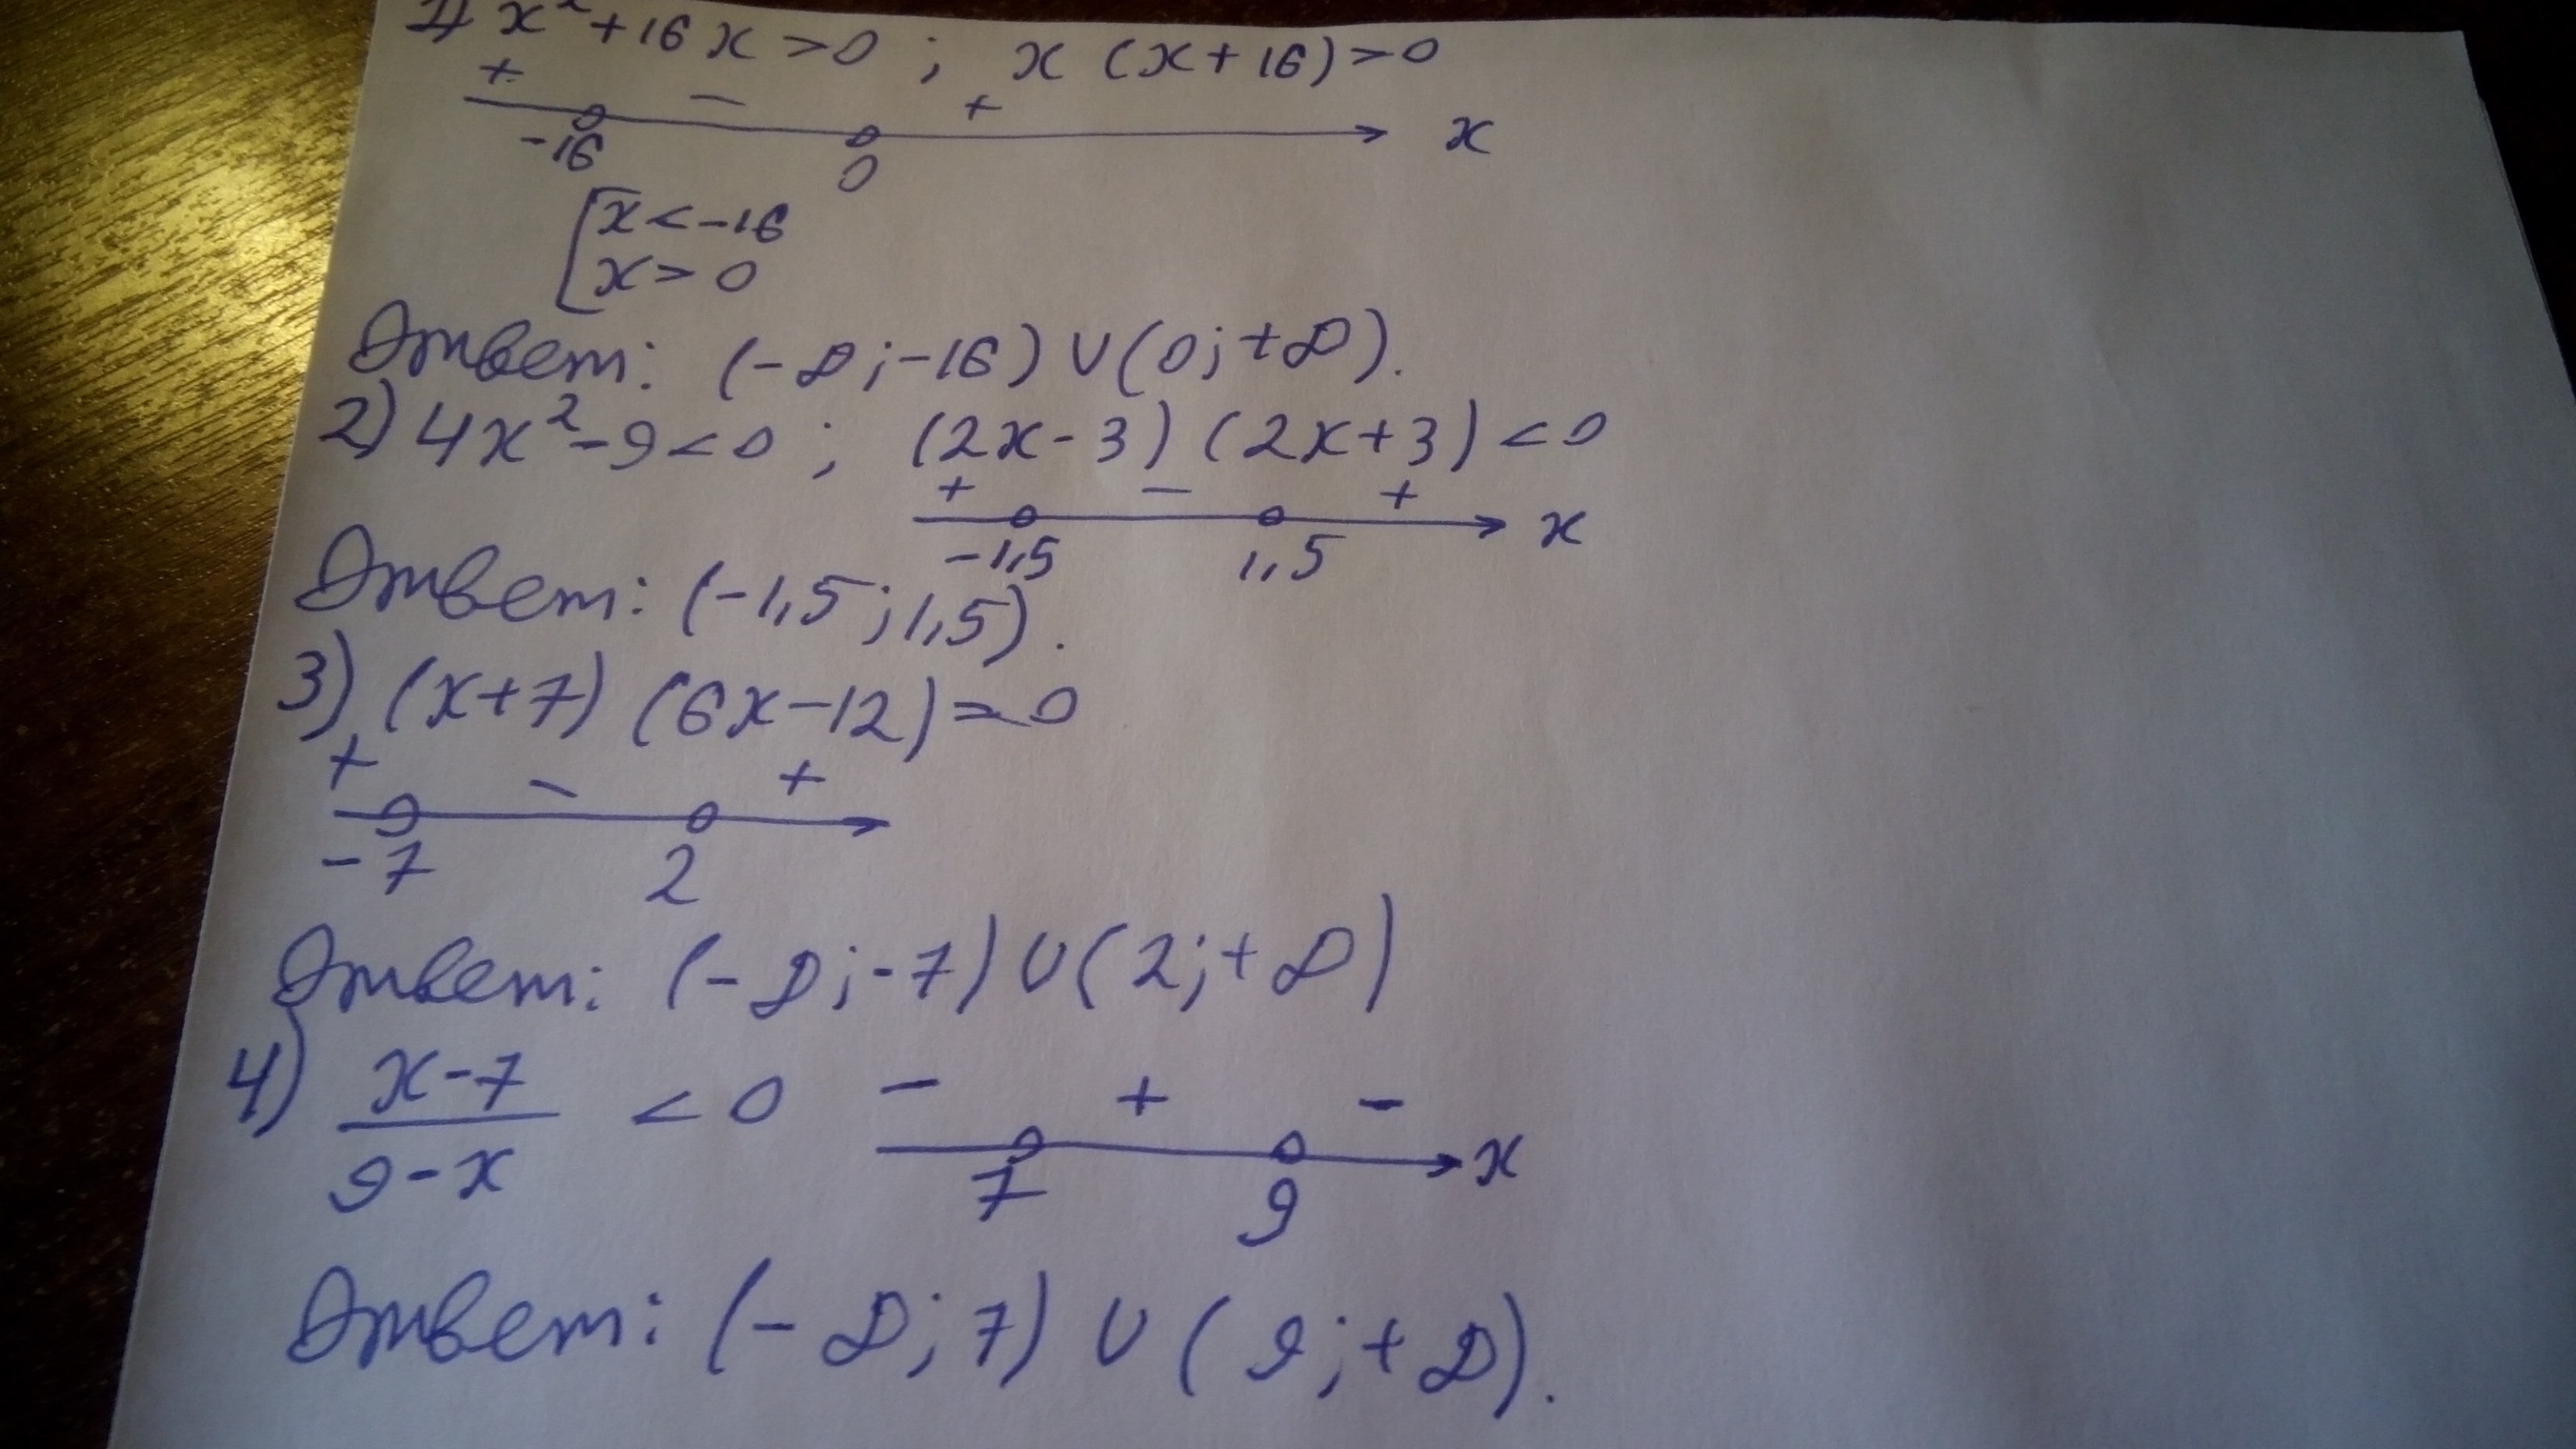 1) x² + 16x > 0 ; x (x + 16) > 0
+ − +
-16 0 x
[ x < -16
x > 0
Ответ: (-∞; -16) ∪ (0; +∞).
2) 4x² - 9 < 0 ; (2x - 3) (2x + 3) < 0
+ − +
-1,5 1,5 x
Ответ: (-1,5; 1,5).
3) (x + 7) (6x - 12) = 0
+ − +
-7 2
Ответ: (-∞; -7) ∪ (2; +∞)
4) (x - 7)/(9 - x) < 0 − + −
7 9 x
Ответ: (-∞; 7) ∪ (9; +∞).